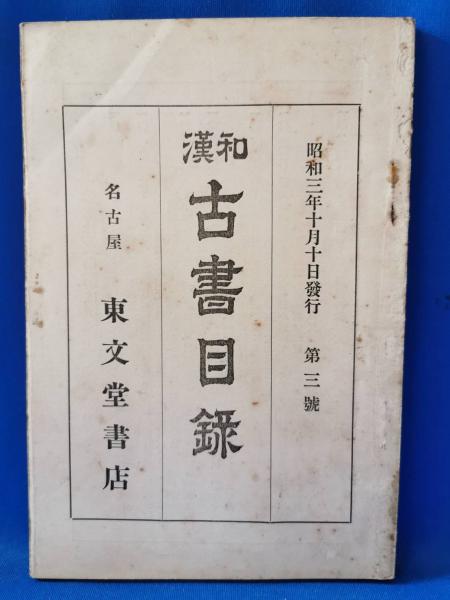 昭和三年十月十日發行 第三號
和漢
古書目錄
名古屋 東文堂書店